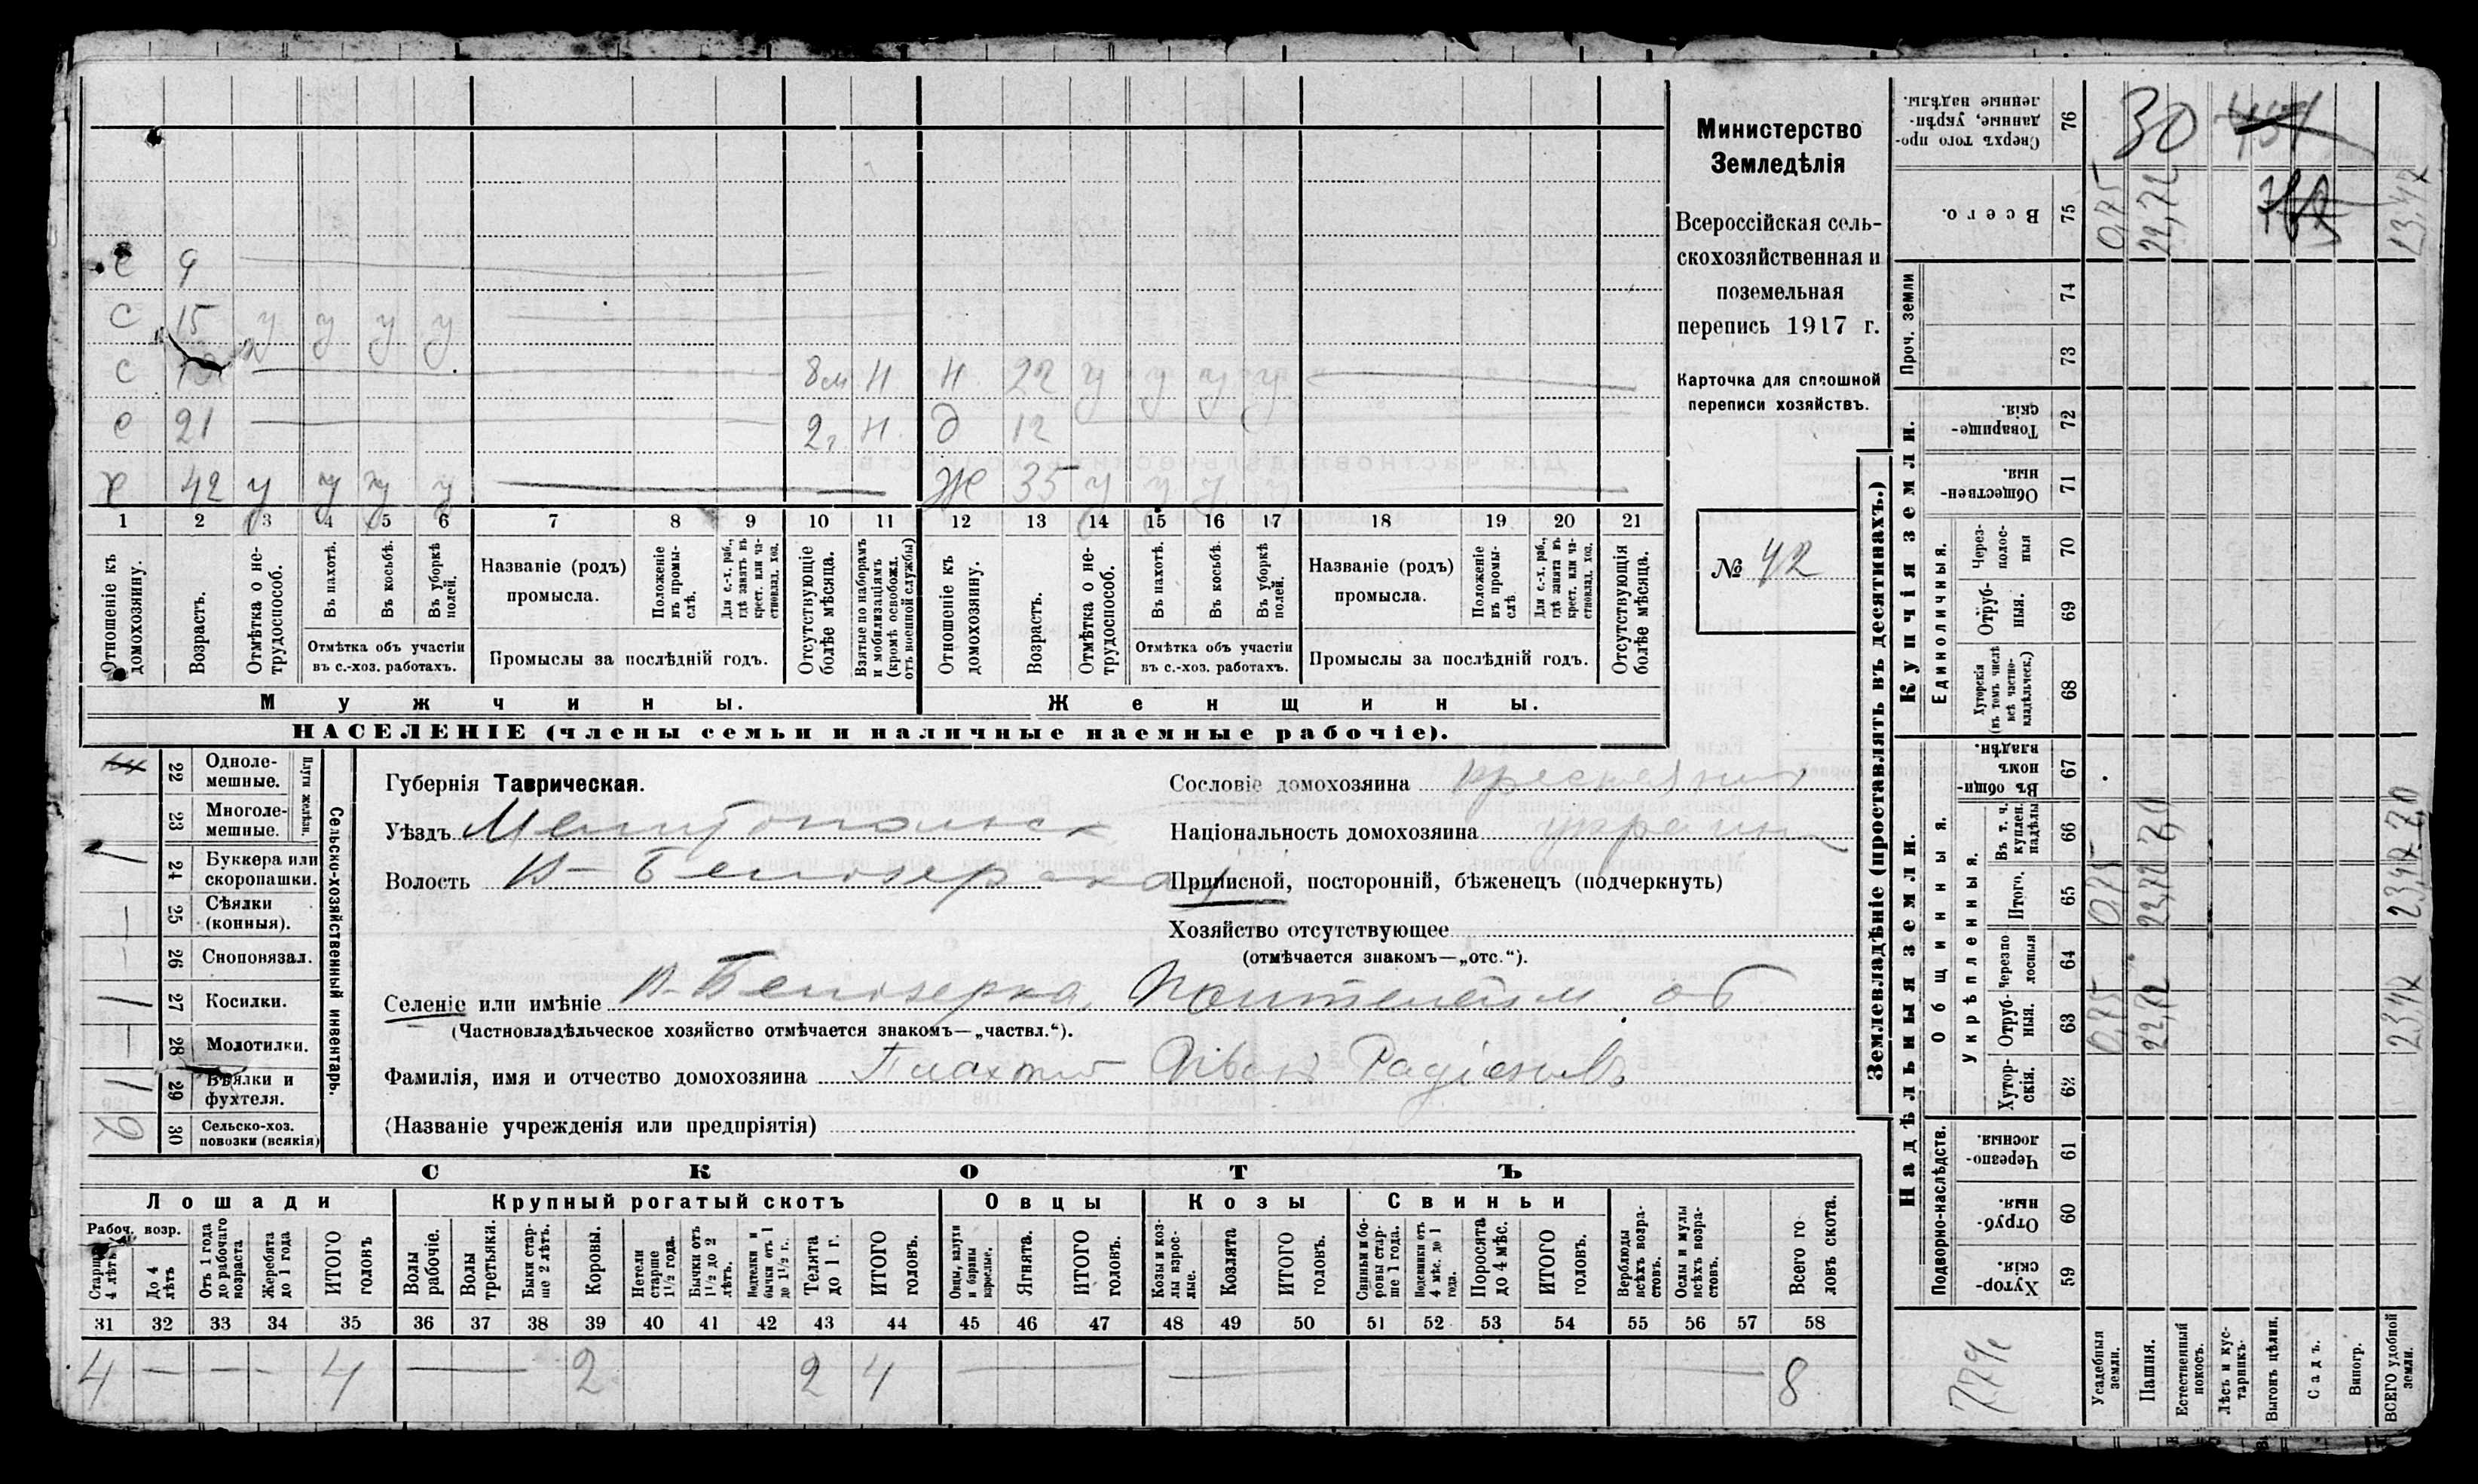 Министерство
Земледѣлія
Всероссійская сель-
скохозяйственная и
поземельная
перепись 1917 г.
Карточка для сплошной
переписи хозяйствъ.
№ 42
с 9
с 15 у у у у
с 8 м н н 22 у у у у
с 21 2 г. н. д 12
х 42 у у у у ж 35 у у у
1 2 3 4 5 6 7 8 9 10 11 12 13 14 15 16 17 18 19 20 21
Отношеніе къ домохозяину.
Возрастъ.
Отмѣтка о не-трудоспособ.
Въ пахотѣ.
Въ косьбѣ.
Въ уборкѣ полей.
Отмѣтка объ участіи
въ с.-хоз. работахъ.
Названіе (родъ)
промысла.
Положеніе въ промы-слѣ.
Для с.-х. раб., гдѣ занятъ въ крест. или ча-стновлад. хоз.
Промыслы за послѣдній годъ.
Отсутствующіе болѣе мѣсяца.
Взятые по наборамъ и мобилизаціямъ (кромѣ освобожд. отъ военной службы)
Отношеніе къ домохозяину.
Возрастъ.
Отмѣтка о не-трудоспособ.
Въ пахотѣ.
Въ косьбѣ.
Въ уборкѣ полей.
Отмѣтка объ участіи
въ с.-хоз. работахъ.
Названіе (родъ)
промысла.
Положеніе въ промы-слѣ
Для с.-х. раб., гдѣ занята въ крест. или ча-стновлад. хоз.
Промыслы за послѣдній годъ.
Отсутствующія болѣе мѣсяца.
Мужчины. Женщины.
НАСЕЛЕНІЕ (члены семьи и наличные наемные рабочіе).
Сельско-хозяйственный инвентарь.
Плуги желѣзн.
22 Одноле-мешные.
23 Многоле-мешные.
1 24 Буккера или скоропашки.
— 25 Сѣялки (конныя).
— 26 Сноповязал.
1 27 Косилки.
— 28 Молотилки.
1 29 Вѣялки и фухтеля.
2 30 Сельско-хоз. повозки (всякія)
Губернія Таврическая.
Уѣздъ Мелитопольск
Волость В-Белозерская
Сословіе домохозяина крестьянин
Національность домохозяина украин
Приписной, посторонній, бѣженецъ (подчеркнуть)
Хозяйство отсутствующее
(отмѣчается знакомъ—„отс.“).
Селеніе или имѣніе В-Белозерка,
(Частновладѣльческое хозяйство отмѣчается знакомъ—„частвл.“).
Фамилія, имя и отчество домохозяина Иванъ Радіоновъ
(Названіе учрежденія или предпріятія)
СКОТЪ
Лошади Крупный рогатый скотъ Овцы Козы Свиньи
Рабоч. возр.
Старше 4 лѣтъ
До 4 лѣтъ
Отъ 1 года до рабочаго возраста
Жеребята до 1 года
ИТОГО головъ
Волы рабочіе.
Волы третьяки.
Быки стар-ше 2 лѣтъ.
Коровы.
Нетели старше 1½ года.
Бычки отъ 1½ до 2 лѣтъ.
бычки отъ 1 до 1½ г.
Телята до 1 г.
ИТОГО головъ.
Овцы, валухи и бараны взрослые.
Ягнята.
ИТОГО головъ.
Козы и коз-лы взрос-лые.
Козлята
ИТОГО головъ.
Свиньи и бо-ровы стар-ше 1 года.
Подсвинки отъ 4 мѣс. до 1 года.
Поросята до 4 мѣс.
ИТОГО головъ.
Верблюды всѣхъ возра-стовъ.
Ослы и мулы всѣхъ возра-стовъ.
Всего го ловъ скота.
31 32 33 34 35 36 37 38 39 40 41 42 43 44 45 46 47 48 49 50 51 52 53 54 55 56 57 58
4 — — — 4 — 2 2 4 — — — — 8
Землевладѣніе (проставлять въ десятинахъ.)
Сверхъ того про-данные, укрѣп-ленные надѣлы. 76 30
Всего. 75 0,75 22,72 23,47
Купчія земли.
Проч. земли 74
73
Товарище-скія. 72
Обществен-ныя. 71
Единоличныя.
Через-полос-ныя 70
Отруб-ныя. 69
Хуторскія (въ томъ числѣ всѣ частно-владѣльческ.) 68
Надѣльныя земли.
Общинныя.
Въ общин-номъ владѣн. 67
Укрѣпленныя.
Въ т. ч. куплен. надѣлы 66 7,0 7,0
Итого. 65 0,75 22,72 23,47
Черезпо лосныя 64
Отруб-ныя. 63 0,75 22,72 23,47
Хутор-скія. 62
Подворно-наслѣдств.
Черезпо-лосныя. 61
Отруб-ныя. 60
Хутор-скія. 59
Усадебныя земли.
Пашня.
Естественный покосъ.
Лѣсъ и кус-тарникъ.
Выгонъ цѣлин.
Садъ.
Виногр.
ВСЕГО удобной земли.